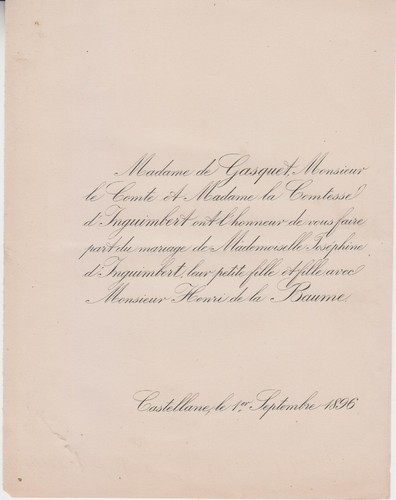 Madame de Gasquet, Monsieur
le Comte et Madame la Comtesse
d'Inguimbert ont l'honneur de vous faire
part du mariage de Mademoiselle Joséphine
d'Inguimbert, leur petite fille et fille avec
Monsieur Henri de la Baume.
Castellane, le 1er Septembre 1896